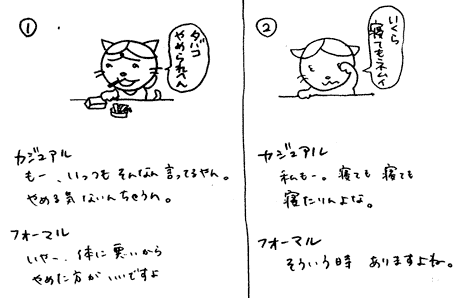 ①
タバコ
やめられへん
カジュアル
もー、いっつもそんなん言ってるやん。
やめる気ないんちゃうん。
フォーマル
いやー、体に悪いから
やめた方がいいですよ
②
いくら
寝てもネムイ
カジュアル
私もー。寝ても寝ても
寝たりんよな。
フォーマル
そういう時ありますよね。